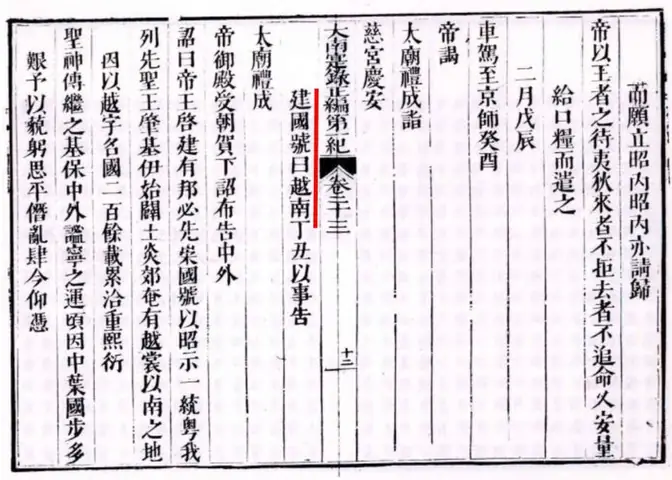 而願立昭內昭內亦請歸
帝以王者之待夷狄來者不拒去者不追命乂安量
給口糧而遣之
二月戊辰
車駕至京師癸酉
帝謁
太廟禮成詣
慈宮慶安
大南寔錄正編第一紀 卷二十三 十二
建國號曰越南丁丑以事告
太廟禮成
帝御殿受朝賀下詔布告中外
詔曰帝王啓建有邦必先崇國號以昭示一統粵我
列先聖王肇基伊始闢土炎郊奄有越裳以南之地
因以越字名國二百餘載累洽重熙衍
聖神傳繼之基保中外謐寧之運頃因中葉國步多
艱予以藐躬思平僭亂肆今仰憑